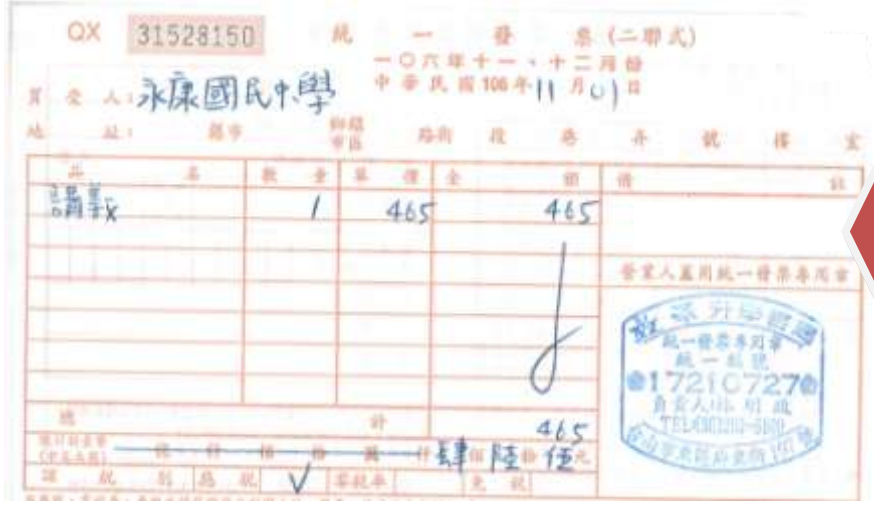 QX 31528150 統一發票(二聯式)
一〇六年十一、十二月份
中華民國106年11月01日
買受人:永康國民中學
地址: 縣市 鄉鎮市區 路街 段 巷 弄 號 樓 室
品名 數量 單價 金額 備註
講義 1 465 465
營業人蓋用統一發票專用章
統一發票專用章
統一編號
17210727
總計 465
總計新臺幣(中文大寫) 億 仟 佰 拾 萬 仟 肆佰 陸拾 伍元
課稅別 應稅 V 零稅率 免稅